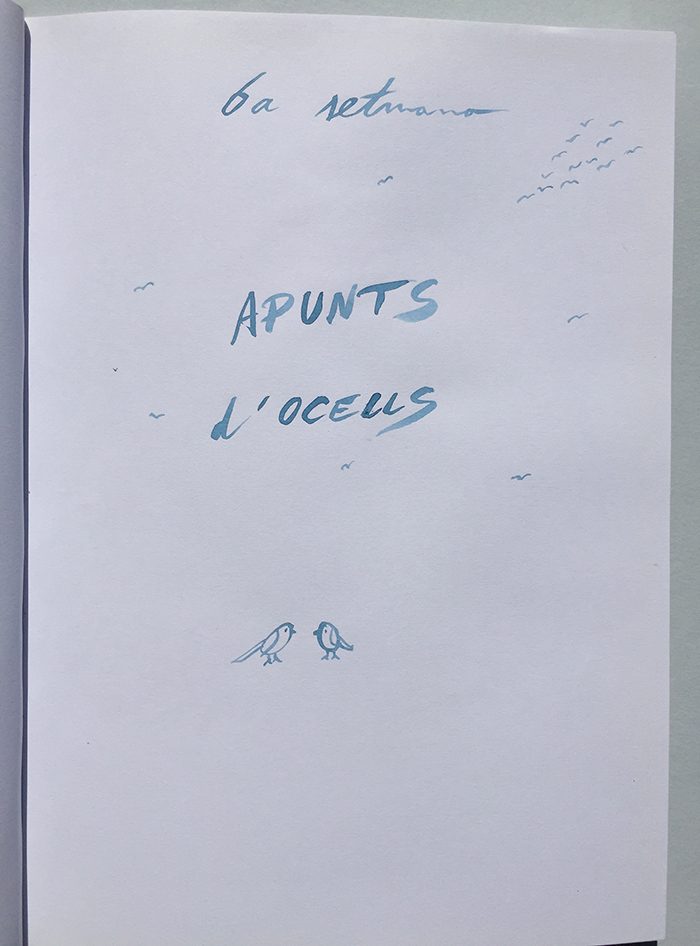 6a setmana
APUNTS
d'OCELLS